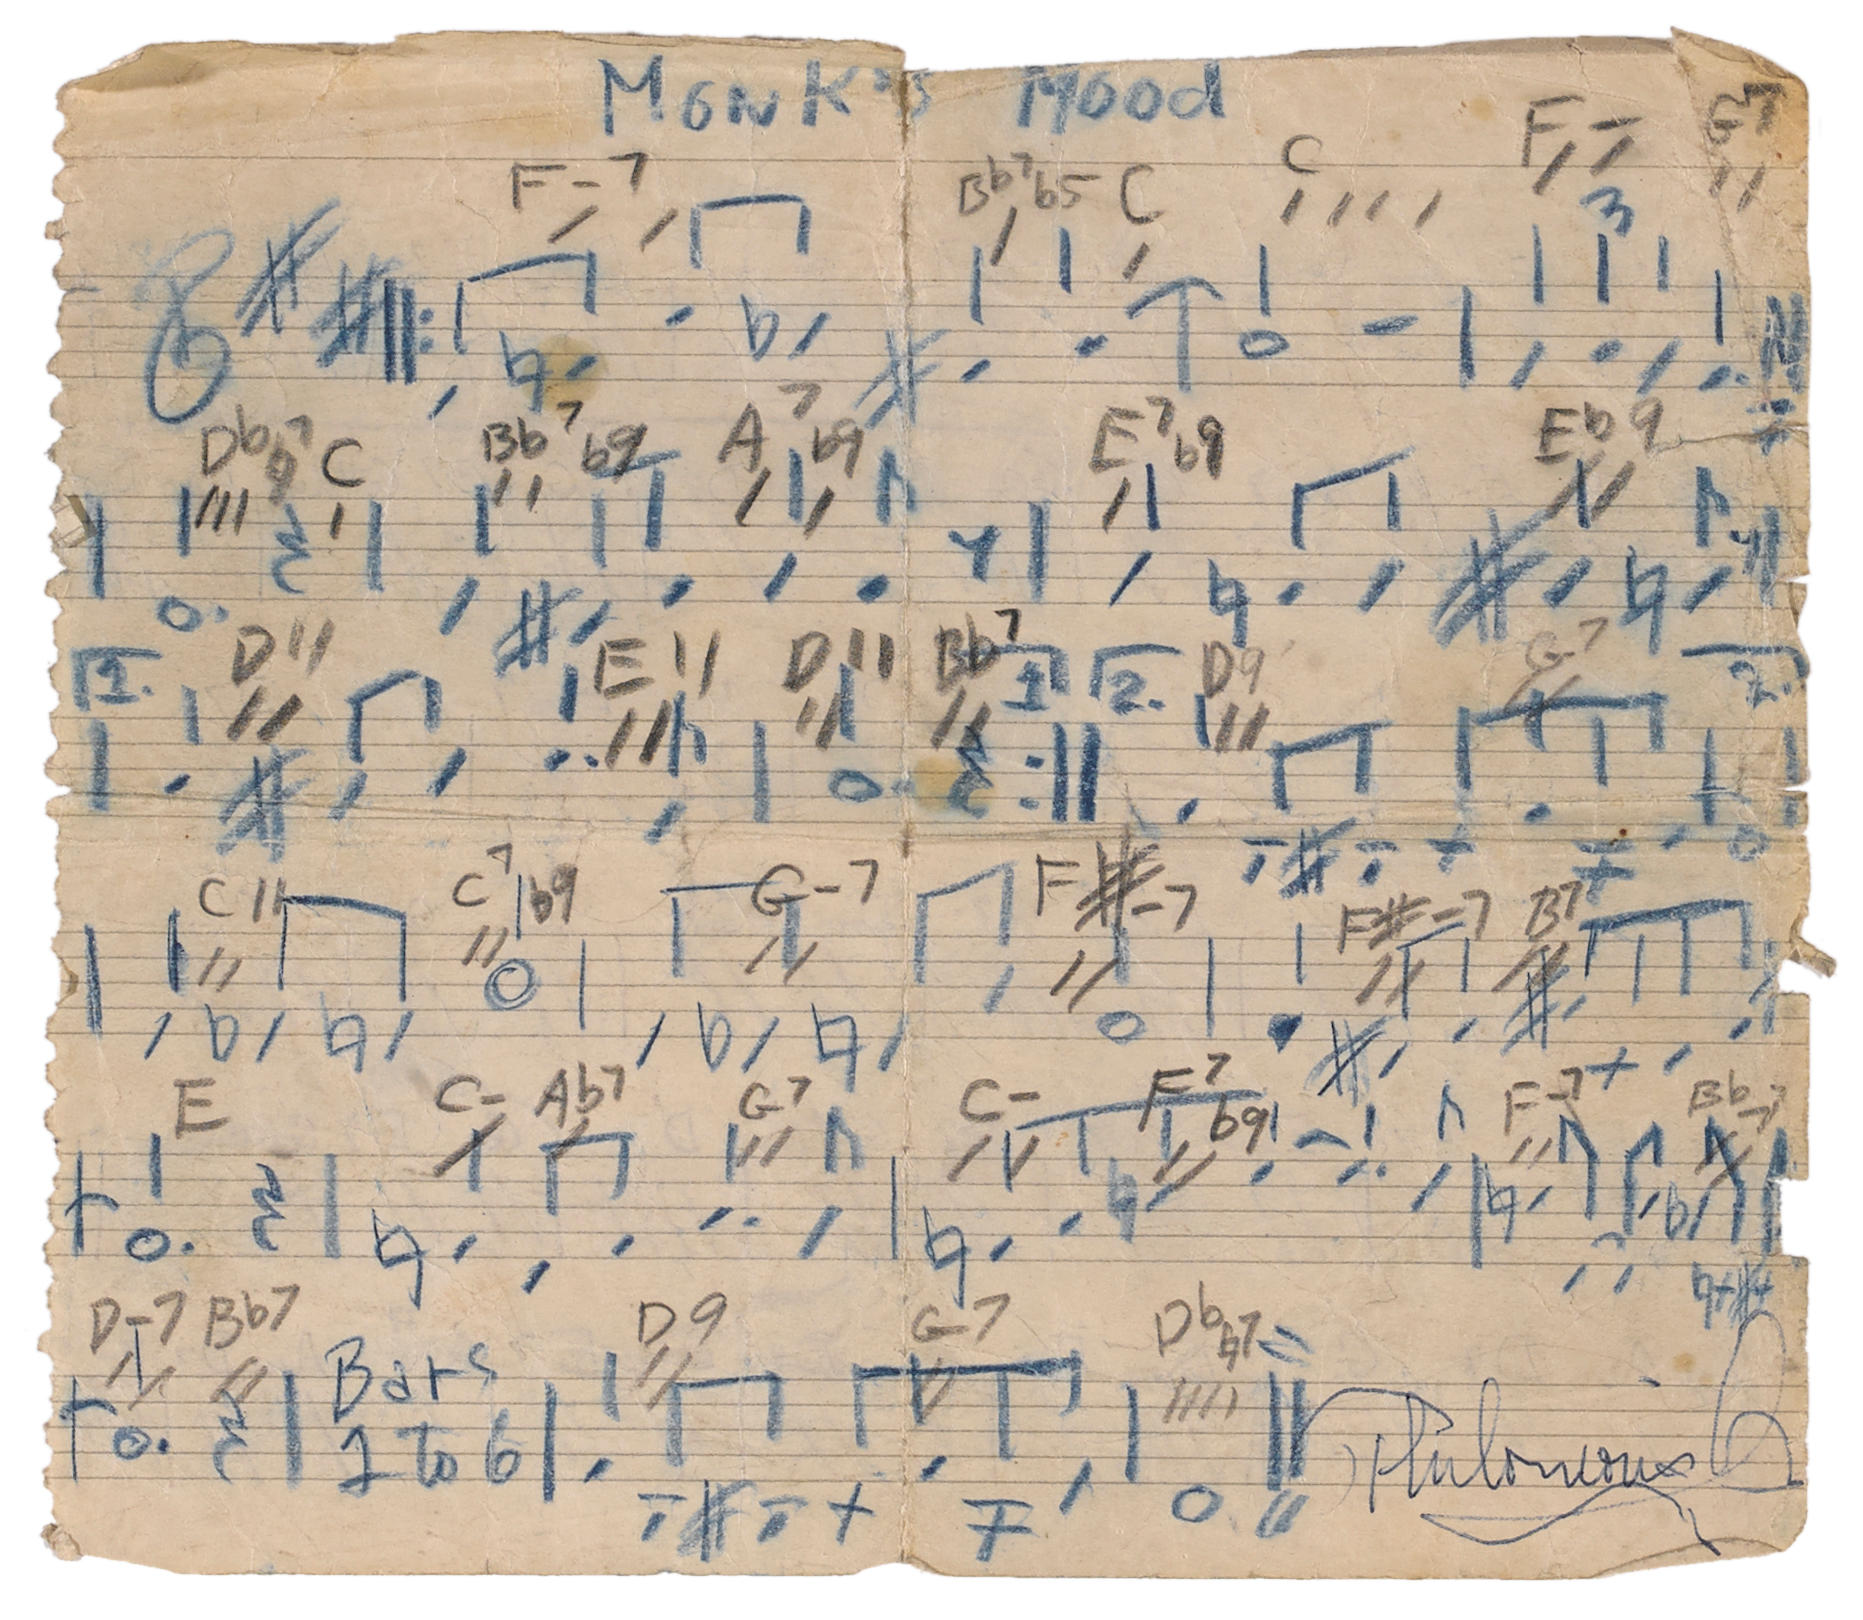 Monk's Mood
F-7 Bb7b5 C C F- G7
3
Db♮7 C Bb7b9 A7b9 E7b9 Eb9
1. D11 E11 D11 Bb7 1 2. D9 G-7 2.
C11 C7b9 G-7 F#-7 F#-7 B7
E C- Ab7 G7 C- F7b9 F-7 Bb-7
D-7 Bb7 Bars D9 G-7 Db♮7
1 to 6
Thelonious